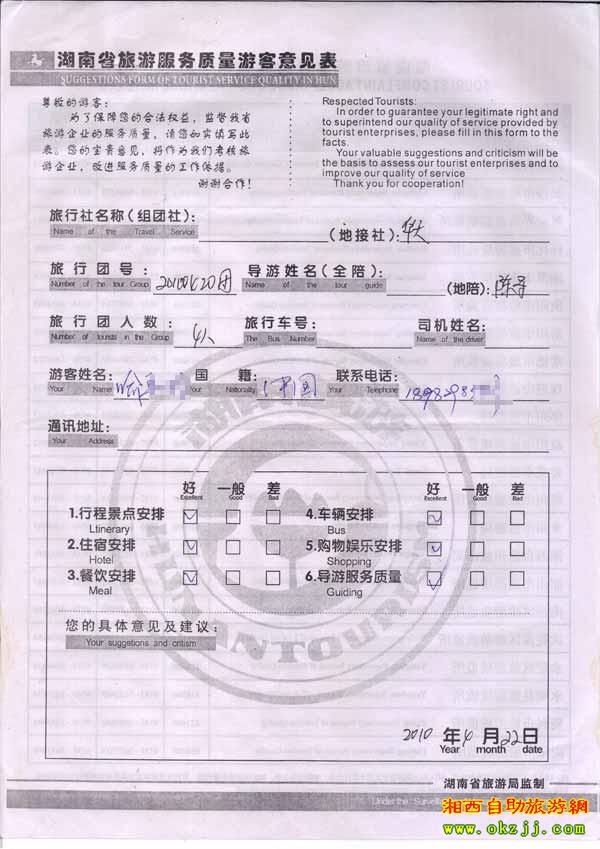 湖南省旅游服务质量游客意见表
SUGGESTIONS FORM OF TOURIST SERVICE QUALITY IN HUN
尊敬的游客：
为了保障您的合法权益，监督我省
旅游企业的服务质量，请您如实填写此
表。您的宝贵意见，将作为我们考核旅
游企业，改进服务质量的工作依据。
谢谢合作！
Respected Tourists:
In order to guarantee your legitimate right and
to superintend our quality of service provided by
tourist enterprises, please fill in this form to the
facts.
Your valuable suggestions and criticism will be
the basis to assess our tourist enterprises and to
improve our quality of service
Thank you for cooperation!
旅行社名称(组团社): (地接社): 华天
Name of the Travel Service
旅行团号: 20100420团 导游姓名(全陪): (地陪): 陈
Number of the tour Group Name of the tour guide
旅行团人数: 4人 旅行车号: 司机姓名:
Number of tourists in the Group The Bus Number Name of the driver
游客姓名: 喻 国籍: 中国 联系电话:
Your Name Your Nationality Your Telephone
通讯地址:
Your Address
好 一般 差 好 一般 差
Excellent Good Bad Excellent Good Bad
1.行程景点安排 4.车辆安排
Ltinerary Bus
2.住宿安排 5.购物娱乐安排
Hotel Shopping
3.餐饮安排 6.导游服务质量
Meal Guiding
您的具体意见及建议:
Your suggetions and critism
2010 年 4 月 22 日
Year month date
湖南省旅游局监制
Under the Surveill
湘西自助旅游網
www.okzjj.com